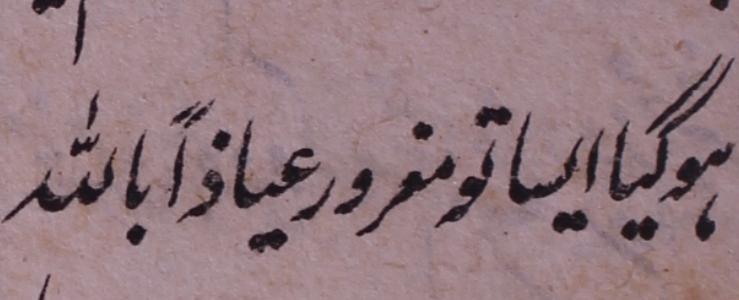 ہوگیا ایسا تو مغرور عیاذاً باللہ